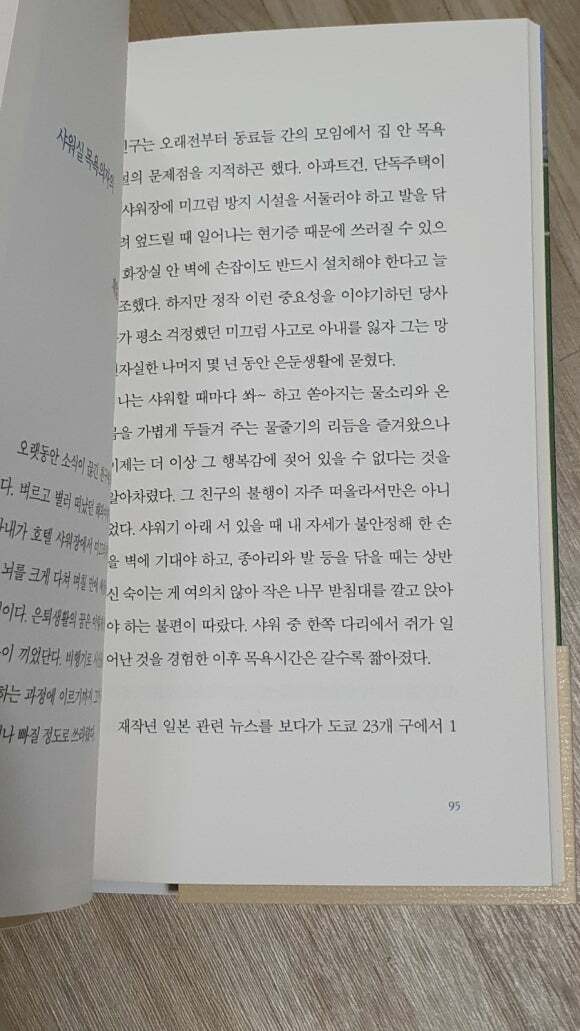 샤워실 목욕의자의
오랫동안 소식이 끊긴
다. 벼르고 별러 떠났던
아내가 호텔 샤워장에서
뇌를 크게 다쳐 며칠 만에
이다. 은퇴생활의 꿈은
이 끼었단다. 비행기로
하는 과정에 이르기까지
나 빠질 정도로
친구는 오래전부터 동료들 간의 모임에서 집 안 목욕
설의 문제점을 지적하곤 했다. 아파트건, 단독주택이
샤워장에 미끄럼 방지 시설을 서둘러야 하고 발을 닦
려 엎드릴 때 일어나는 현기증 때문에 쓰러질 수 있으
화장실 안 벽에 손잡이도 반드시 설치해야 한다고 늘
조했다. 하지만 정작 이런 중요성을 이야기하던 당사
가 평소 걱정했던 미끄럼 사고로 아내를 잃자 그는 망
연자실한 나머지 몇 년 동안 은둔생활에 묻혔다.
나는 샤워할 때마다 쏴~ 하고 쏟아지는 물소리와 온
몸을 가볍게 두들겨 주는 물줄기의 리듬을 즐겨왔으나
이제는 더 이상 그 행복감에 젖어 있을 수 없다는 것을
알아차렸다. 그 친구의 불행이 자주 떠올라서만은 아니
었다. 샤워기 아래 서 있을 때 내 자세가 불안정해 한 손
을 벽에 기대야 하고, 종아리와 발 등을 닦을 때는 상반
신 숙이는 게 여의치 않아 작은 나무 받침대를 깔고 앉아
야 하는 불편이 따랐다. 샤워 중 한쪽 다리에서 쥐가 일
어난 것을 경험한 이후 목욕시간은 갈수록 짧아졌다.
재작년 일본 관련 뉴스를 보다가 도쿄 23개 구에서 1
95